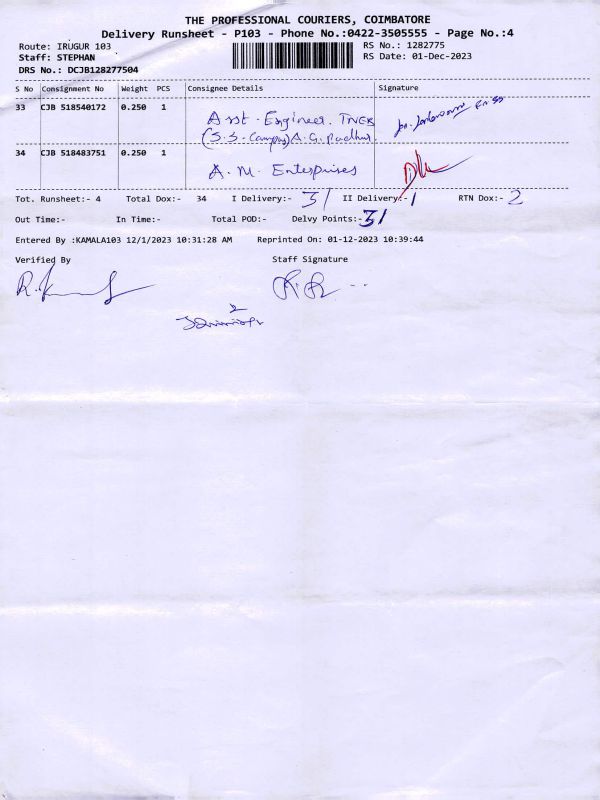 THE PROFESSIONAL COURIERS, COIMBATORE
Delivery Runsheet - P103 - Phone No.:0422-3505555 - Page No.:4
Route: IRUGUR 103 RS No.: 1282775
Staff: STEPHAN RS Date: 01-Dec-2023
DRS No.: DCJB128277504
S No Consignment No Weight PCS Consignee Details Signature
33 CJB 518540172 0.250 1 Asst. Engineer. TNEB
(S.S. Campus) A.G. Pudhur.
34 CJB 518483751 0.250 1 A. M. Enterprises
Tot. Runsheet:- 4 Total Dox:- 34 I Delivery:- 31 II Delivery:- 1 RTN Dox:- 2
Out Time:- In Time:- Total POD:- Delvy Points:- 31
Entered By :KAMALA103 12/1/2023 10:31:28 AM Reprinted On: 01-12-2023 10:39:44
Verified By Staff Signature